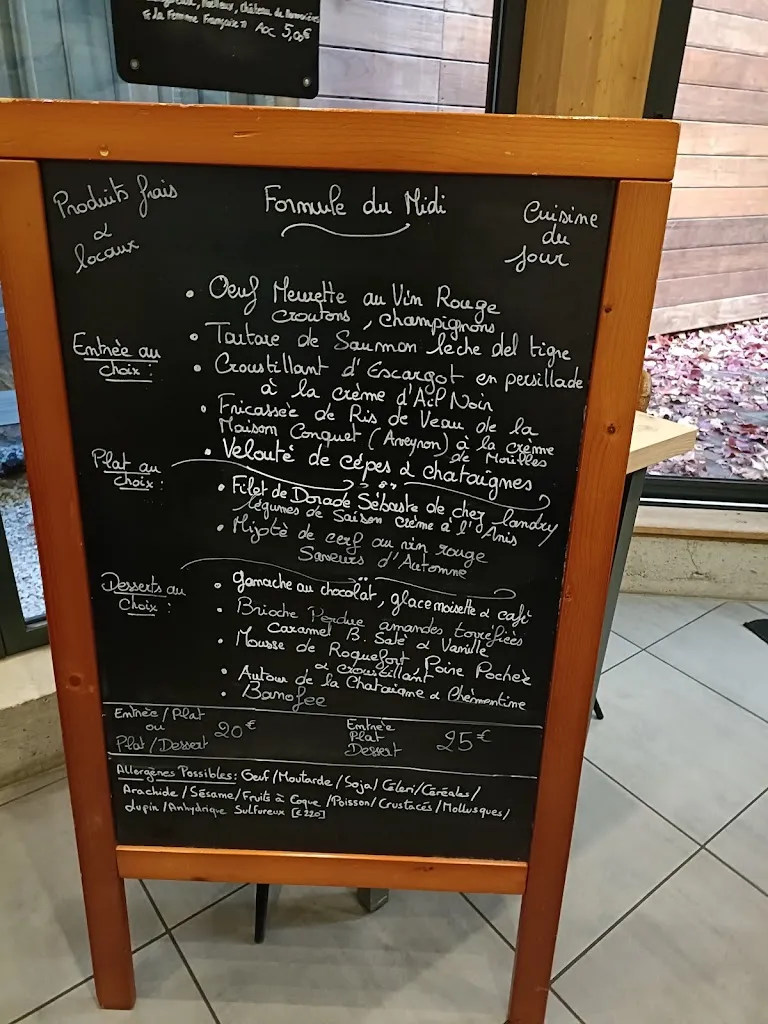 Moelleux, Château de
" La Femme Française " AOC 5,00€
Produits frais
&
locaux
Formule du Midi
Cuisine
du
jour
Entrée au
choix :
• Oeuf Meurette au Vin Rouge
croutons, champignons
• Tartare de Saumon leche del tigre
• Croustillant d'Escargot en persillade
à la crème d'Ail Noir
• Fricassée de Ris de Veau de la
Maison Conquet (Aveyron) à la crème
de Morilles
• Velouté de cèpes & chataignes
Plat au
choix :
• Filet de Dorade Sébaste de chez Landry
légumes de Saison crème à l'Anis
• Mijoté de cerf au vin rouge
Saveurs d'Automne
Desserts au
choix :
• Ganache au chocolat, glace noisette & café
• Brioche Perdue amandes torréfiées
Caramel B. Salé & Vanille
• Mousse de Roquefort, Poire Pochée
& croustillant
• Autour de la Chataigne & Clémentine
• Banofee
Entrée / Plat
ou
Plat / Dessert
20€
Entrée
Plat
Dessert
25€
Allergènes Possibles: Oeuf / Moutarde / Soja / Céleri / Céréales /
Arachide / Sésame / Fruits à Coque / Poisson / Crustacés / Mollusques /
Lupin / Anhydrique Sulfureux [E220]